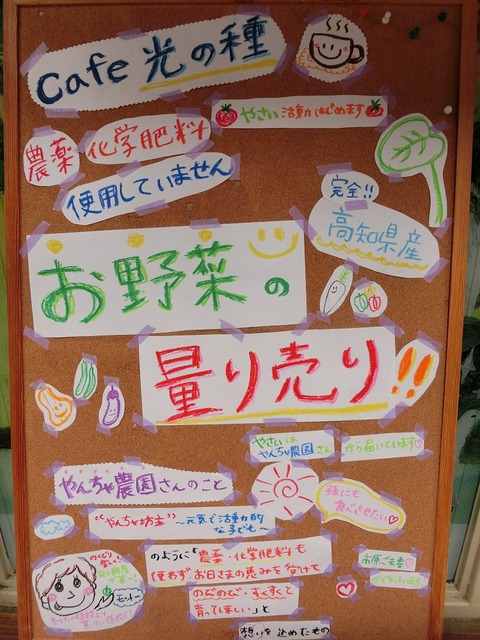 Cafe 光の種
やさい活動はじめます
農薬 化学肥料
使用していません
完全!!
高知県産
お野菜の
量り売り!!
やさいは
やんちゃ農園さん
から届いています♡
やんちゃ農園さんのこと
孫にも
食べさせたい♡
"やんちゃ坊主"
〜元気で活動的
な子ども〜
のように『農薬・化学肥料も
使わず、お日さまの恵みを受けて
のびのび・すくすくと
育ってほしい』と
想いを込めたもの
ご夫妻♡